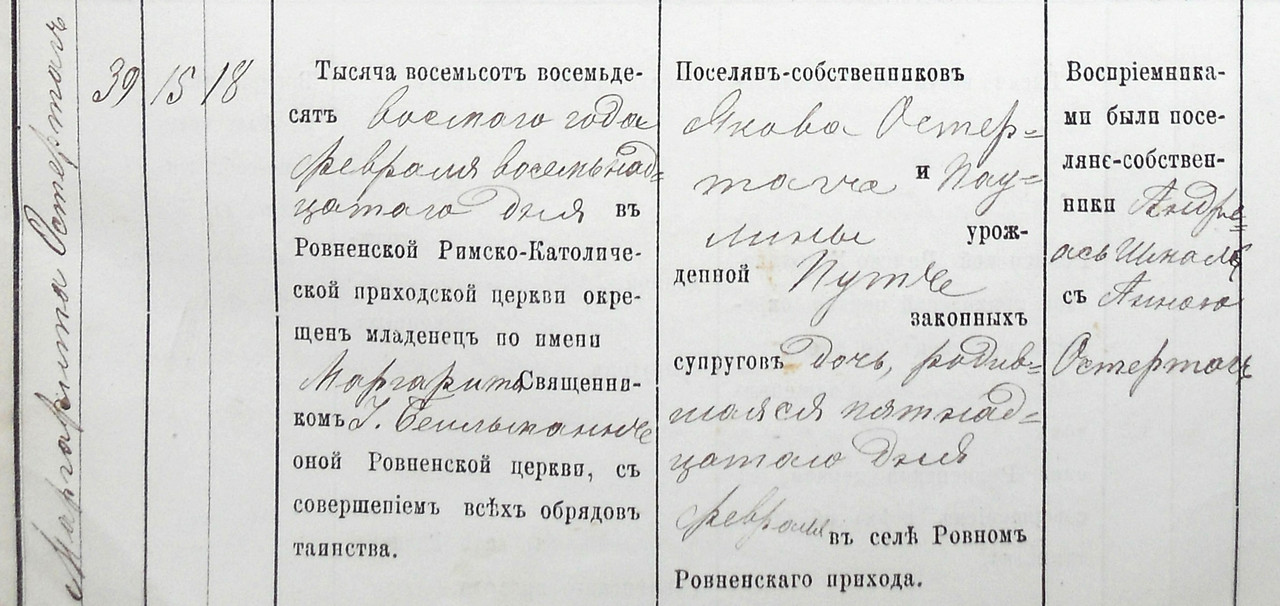 Маргарита Остертагъ
39 15 18
Тысяча восемьсотъ восемьде-
сятъ восьмаго года
февраля восемнад=
цатаго дня въ
Ровненской Римско-Католиче-
ской приходской церкви окре-
щенъ младенецъ по имени
Маргарита Священни-
комъ І. Бейльманномъ
оной Ровненской церкви, съ
совершеніемъ всѣхъ обрядовъ
таинства.
Поселянъ-собственниковъ
Якова Остер=
тага и Пау=
лины урож-
денной
законныхъ
супруговъ дочь, родив=
шаяся пятнад=
цатаго дня
февраля въ селѣ Ровномъ
Ровненскаго прихода.
Воспріемника-
ми были посе-
ляне-собствен-
ники Андре=
асъ
съ Анною
Остертагъ